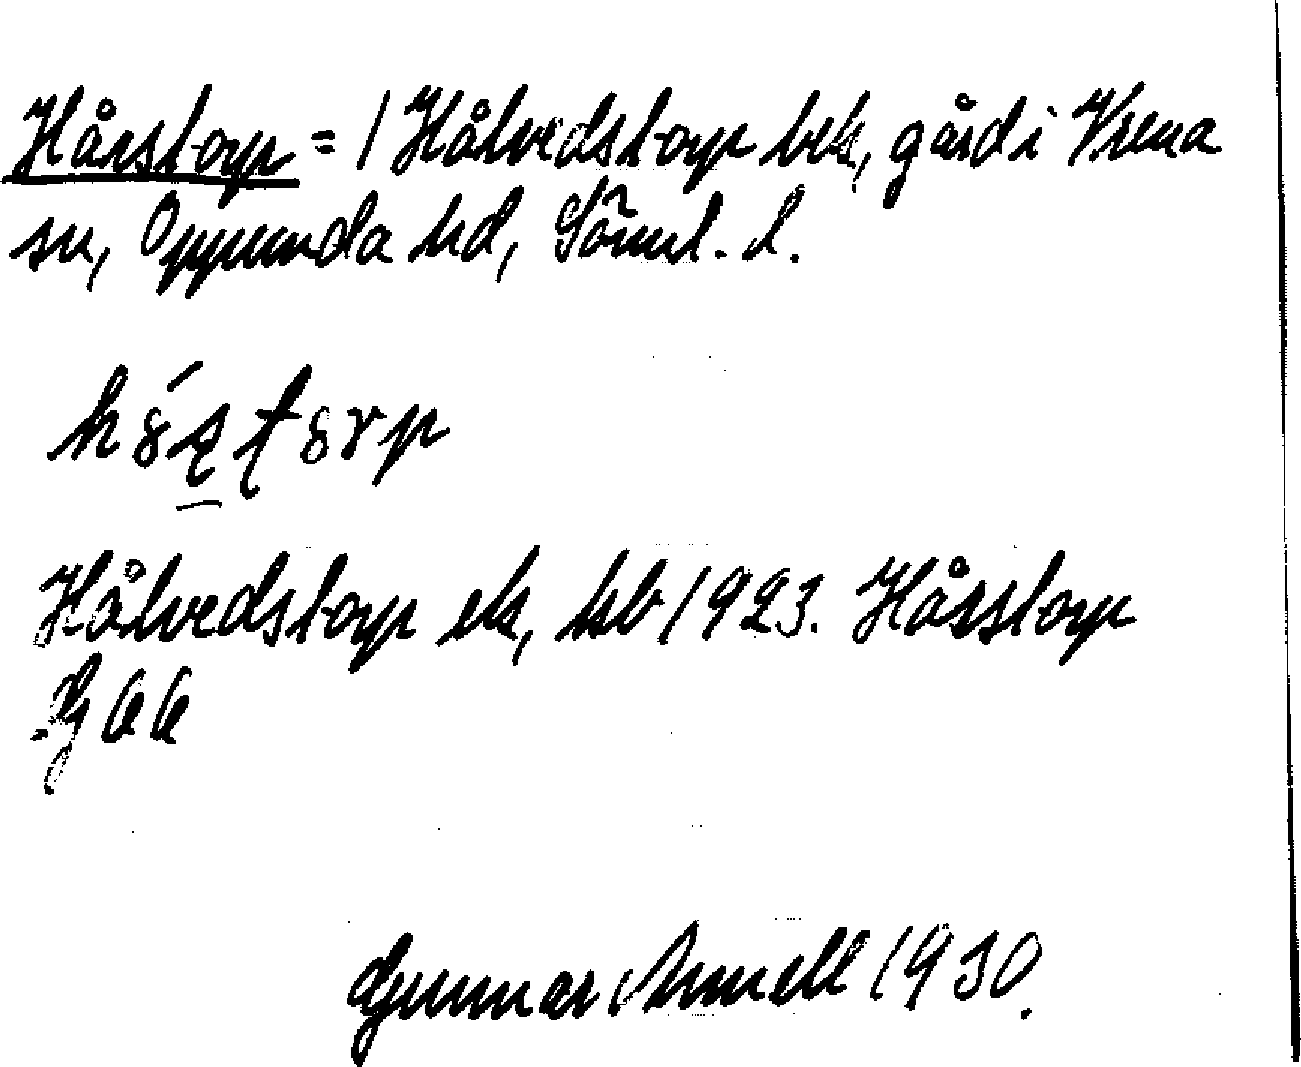 Hårstorp = 1 Hålvedstorp bek, gård i Vrena
sn, Oppunda hd, Söml. l.
Hålvedstorp ek, kb 1923. Hårstorp
G 66
Gunnar Amell 1930.